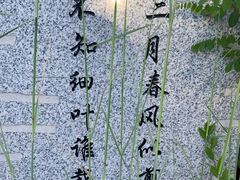 未知细叶谁裁
二月春风似剪